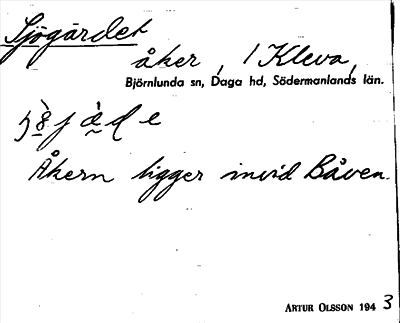 Sjögärdet
åker, 1 Kleva,
Björnlunda sn, Daga hd, Södermanlands län.
Åkern ligger invid Båven.
ARTUR OLSSON 1943